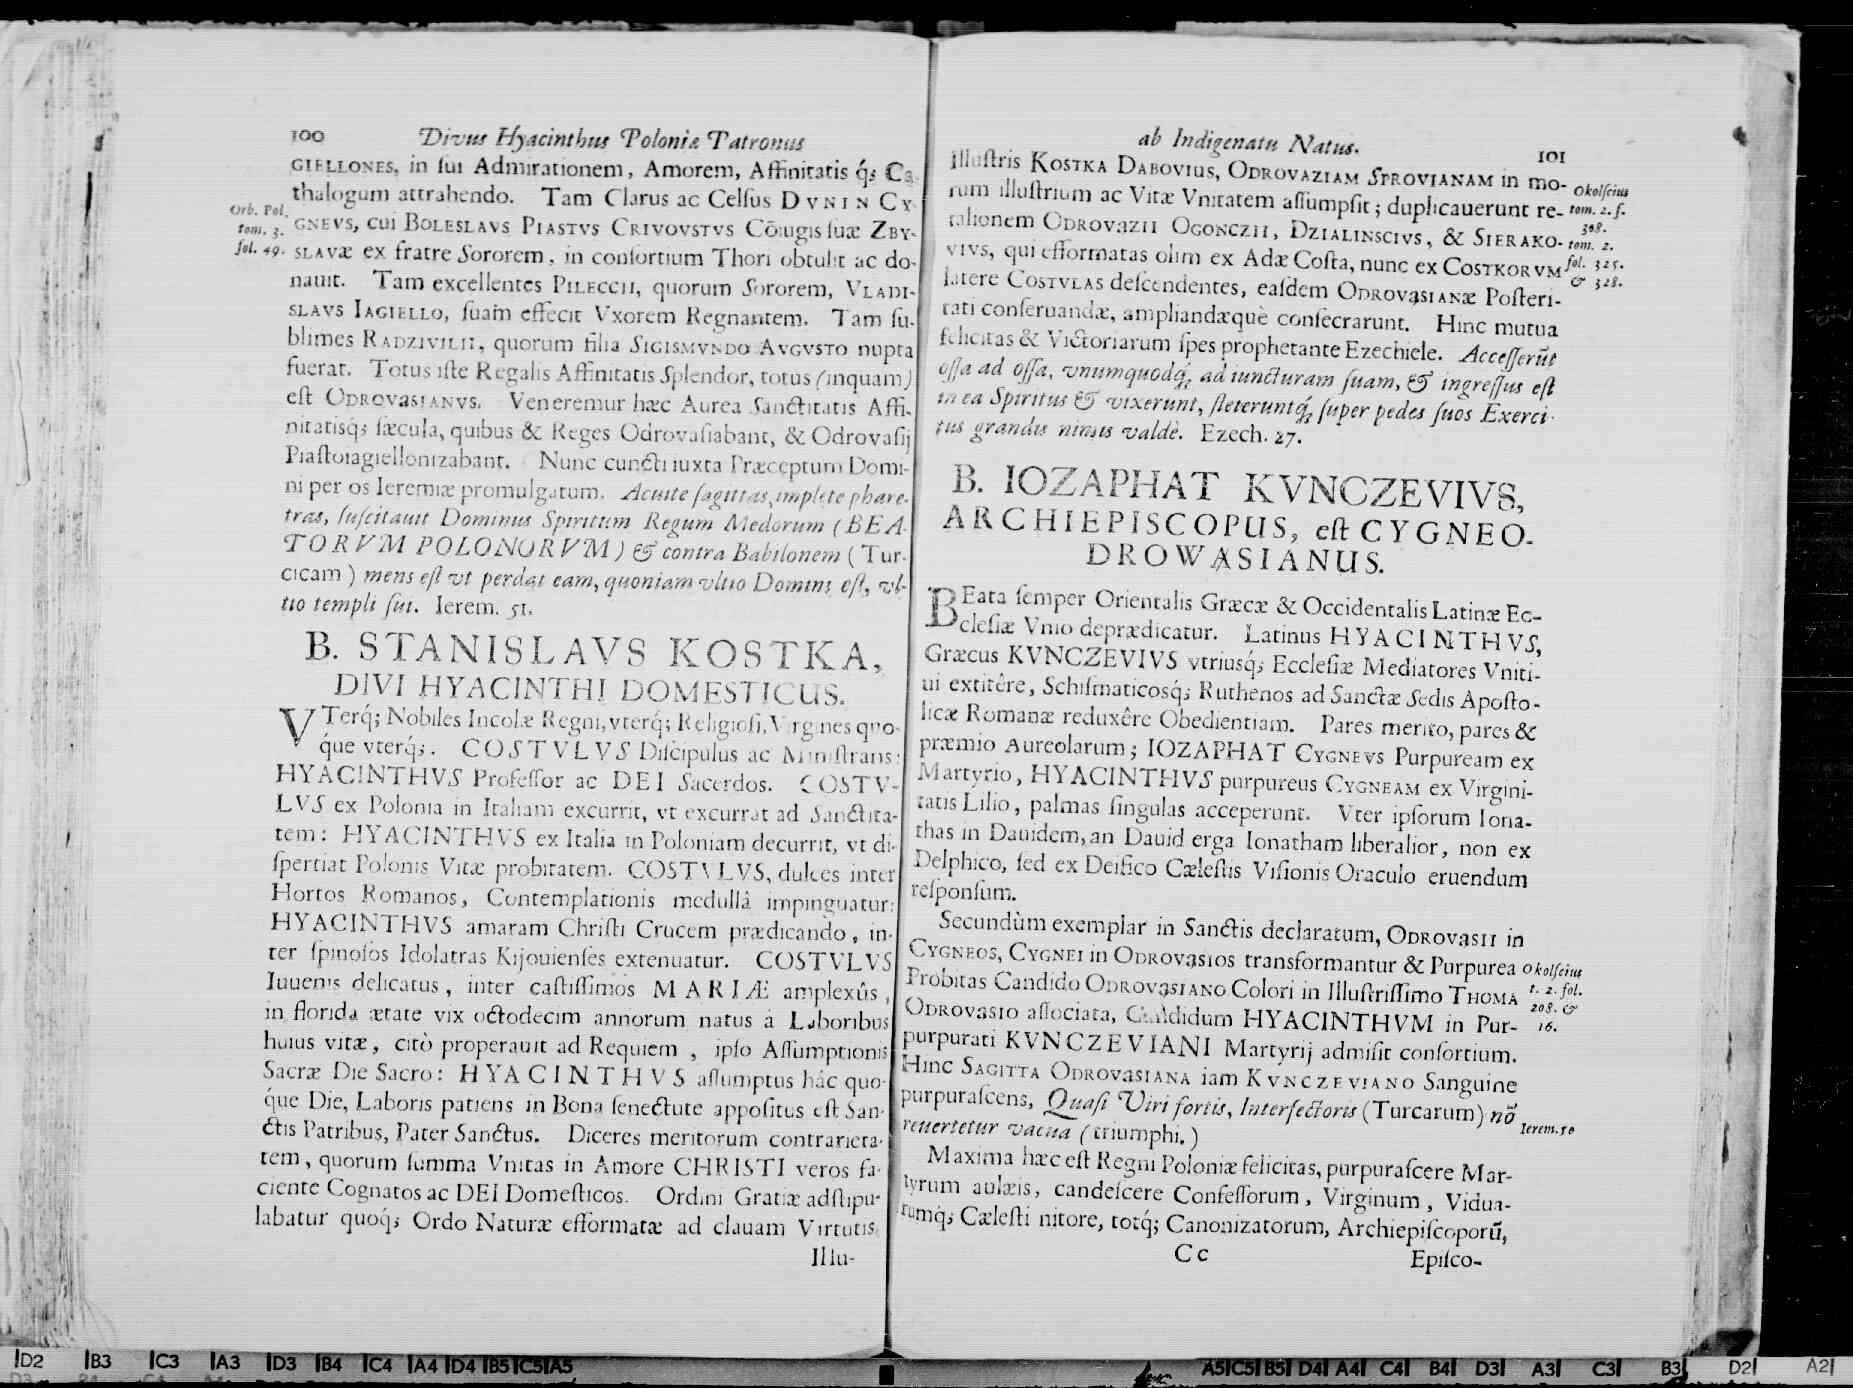 100 Divus Hyacinthus Poloniæ Patronus
GIELLONES, in ſui Admirationem, Amorem, Affinitatis q́; Ca-
thalogum attrahendo. Tam Clarus ac Celſus DVNIN CY-
GNEVS, cui BOLESLAVS PIASTVS CRIVOVSTVS Cōiugis ſuæ ZBY-
SLAVÆ ex fratre Sororem, in conſortium Thori obtulit ac do-
nauit. Tam excellentes PILECCII, quorum Sororem, VLADI-
SLAVS IAGIELLO, ſuam effecit Vxorem Regnantem. Tam ſu-
blimes RADZIVILII, quorum filia SIGISMVNDO AVGVSTO nupta
fuerat. Totus iſte Regalis Affinitatis Splendor, totus (inquam)
eſt ODROVASIANVS. Veneremur hæc Aurea Sanctitatis Affi-
nitatisq́; ſæcula, quibus & Reges Odrovaſiabant, & Odrovaſij
Piaſtoiagiellonizabant. Nunc cuncti iuxta Præceptum Domi-
ni per os Ieremiæ promulgatum. Acuite ſagittas, implete phare-
tras, ſuſcitauit Dominus Spiritum Regum Medorum (BEA-
TORVM POLONORVM) & contra Babilonem (Tur-
cicam) mens eſt vt perdat eam, quoniam vltio Domini eſt, vl-
tio templi ſui. Ierem. 51.
Orb. Pol.
tom. 3.
fol. 49.
B. STANISLAVS KOSTKA,
DIVI HYACINTHI DOMESTICUS.
VTerq́; Nobiles Incolæ Regni, vterq́; Religioſi, Virgines quo-
q́ue vterq́;. COSTVLVS Diſcipulus ac Miniſtrans:
HYACINTHVS Profeſſor ac DEI Sacerdos. COSTV-
LVS ex Polonia in Italiam excurrit, vt excurrat ad Sanctita-
tem: HYACINTHVS ex Italia in Poloniam decurrit, vt di-
ſpertiat Polonis Vitæ probitatem. COSTVLVS, dulces inter
Hortos Romanos, Contemplationis medullâ impinguatur:
HYACINTHVS amaram Chriſti Crucem prædicando, in-
ter ſpinoſos Idolatras Kijouienſes extenuatur. COSTVLVS
Iuuenis delicatus, inter caſtiſſimos MARIÆ amplexûs,
in florida ætate vix octodecim annorum natus à Laboribus
huius vitæ, citò properauit ad Requiem, ipſo Aſſumptionis
Sacræ Die Sacro: HYACINTHVS aſſumptus hâc quo-
q́ue Die, Laboris patiens in Bona ſenectute appoſitus eſt San-
ctis Patribus, Pater Sanctus. Diceres meritorum contrarieta-
tem, quorum ſumma Vnitas in Amore CHRISTI veros fa-
ciente Cognatos ac DEI Domeſticos. Ordini Gratiæ adſtipu-
labatur quoq́; Ordo Naturæ efformatæ ad clauam Virtutis.
Illu-
ab Indigenatu Natus. 101
Illuſtris KOSTKA DABOVIUS, ODROVAZIAM SPROVIANAM in mo-
rum illuſtrium ac Vitæ Vnitatem aſſumpſit; duplicauerunt re-
talionem ODROVAZII OGONCZII, DZIALINSCIVS, & SIERAKO-
VIVS, qui efformatas olim ex Adæ Coſta, nunc ex COSTKORVM
latere COSTVLAS deſcendentes, eaſdem ODROVASIANÆ Poſteri-
tati conſeruandæ, ampliandæquè conſecrarunt. Hinc mutua
felicitas & Victoriarum ſpes prophetante Ezechiele. Acceſſerūt
oſſa ad oſſa, vnumquodq́; ad iuncturam ſuam, & ingreſſus eſt
in ea Spiritus & vixerunt, ſteteruntq́; ſuper pedes ſuos Exerci-
tus grandis nimis valdè. Ezech. 27.
Okolſcius
tom. 2. f.
308.
tom. 2.
fol. 325.
& 328.
B. IOZAPHAT KVNCZEVIVS,
ARCHIEPISCOPUS, eſt CYGNEO-
DROWASIANUS.
BEata ſemper Orientalis Græcæ & Occidentalis Latinæ Ec-
cleſiæ Vnio deprædicatur. Latinus HYACINTHVS,
Græcus KVNCZEVIVS vtriusq́; Eccleſiæ Mediatores Vniti-
ui extitêre, Schiſmaticosq́; Ruthenos ad Sanctæ Sedis Apoſto-
licæ Romanæ reduxêre Obedientiam. Pares merito, pares &
præmio Aureolarum; IOZAPHAT CYGNEVS Purpuream ex
Martyrio, HYACINTHVS purpureus CYGNEAM ex Virgini-
tatis Lilio, palmas ſingulas acceperunt. Vter ipſorum Iona-
thas in Dauidem, an Dauid erga Ionatham liberalior, non ex
Delphico, ſed ex Deifico Cæleſtis Viſionis Oraculo eruendum
reſponſum.
Secundùm exemplar in Sanctis declaratum, ODROVASII in
CYGNEOS, CYGNEI in ODROVASIOS transformantur & Purpurea
Probitas Candido ODROVASIANO Colori in Illuſtriſſimo THOMA
ODROVASIO aſſociata, Candidum HYACINTHVM in Pur-
purpurati KVNCZEVIANI Martyrij admiſit conſortium.
Hinc SAGITTA ODROVASIANA iam KVNCZEVIANO Sanguine
purpuraſcens, Quaſi Viri fortis, Interfectoris (Turcarum) nō
reuertetur vacua (triumphi.)
Okolſcius
t. 2. fol.
208. &
16.
Ierem. 50
Maxima hæc eſt Regni Poloniæ felicitas, purpuraſcere Mar-
tyrum aulæis, candeſcere Confeſſorum, Virginum, Vidua-
rumq́; Cæleſti nitore, totq́; Canonizatorum, Archiepiſcoporū,
Cc Epiſco-
D2 B3 C3 A3 D3 B4 C4 A4 D4 B5 C5 A5
A5 C5 B5 D4 A4 C4 B4 D3 A3 C3 B3 D2 A2